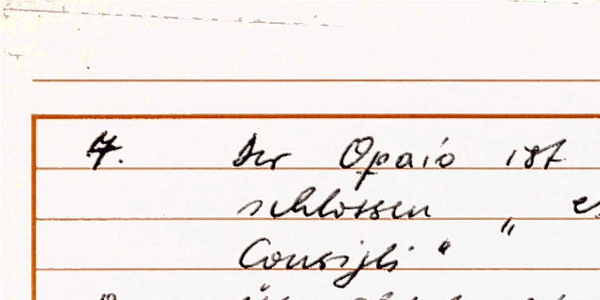 7. Der Opaio ist
schlossen " e
Consigli "